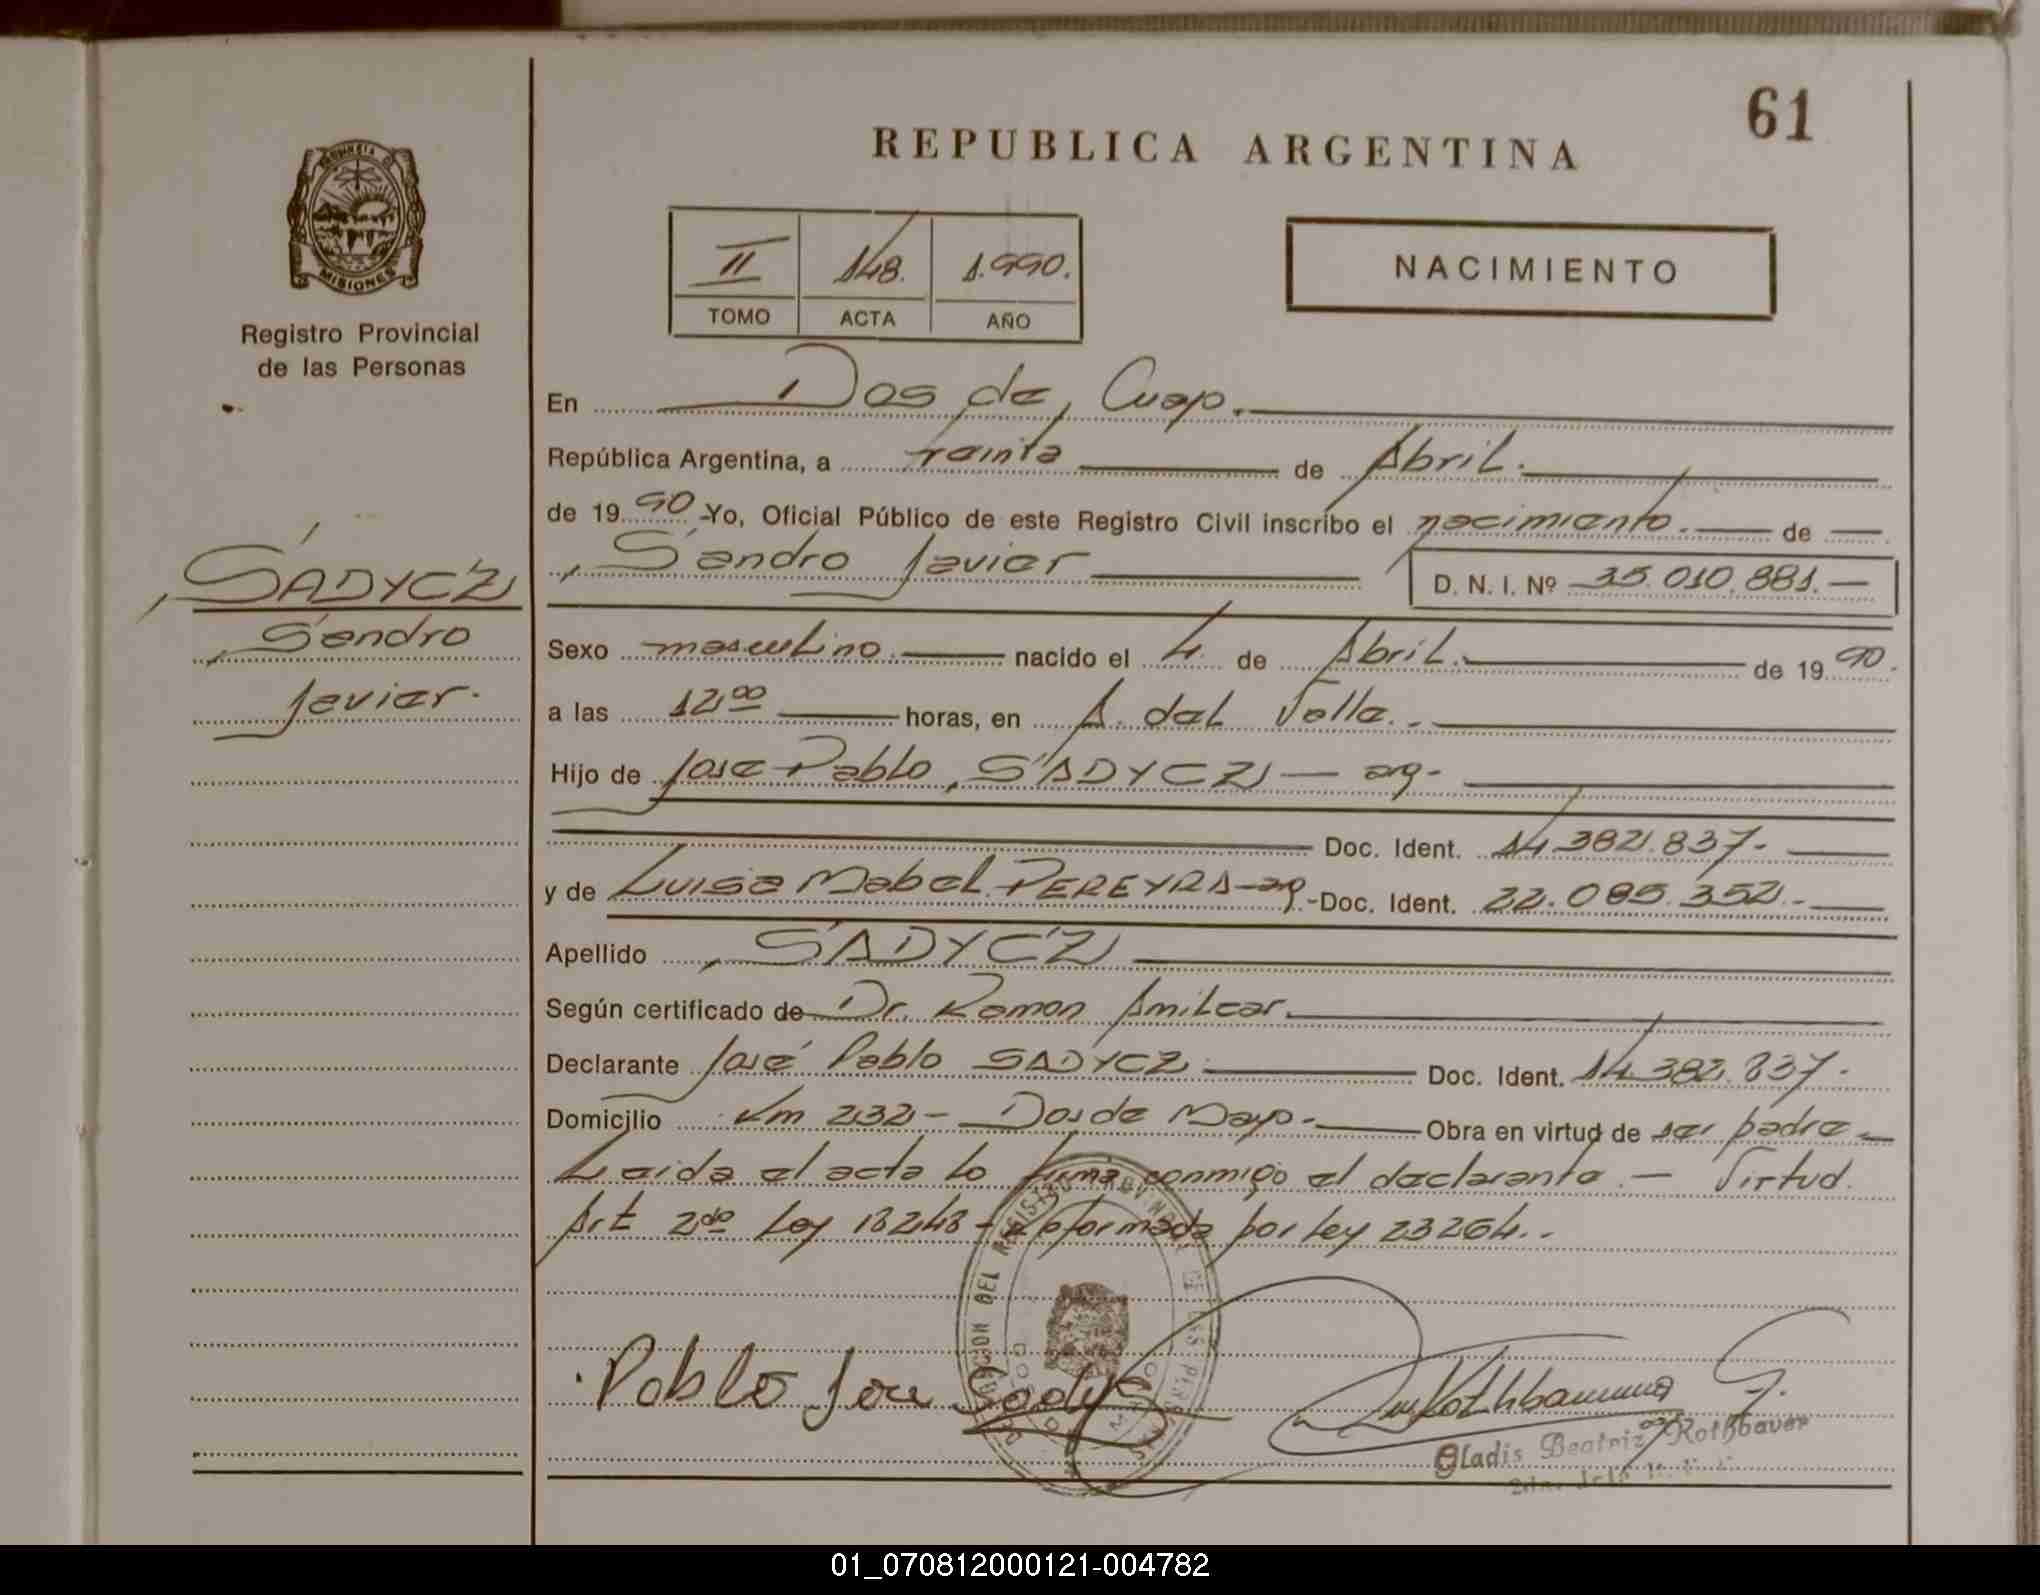 61
REPUBLICA ARGENTINA
PROVINCIA DE
MISIONES
Registro Provincial
de las Personas
II 148. 1.990.
TOMO ACTA AÑO
NACIMIENTO
En Dos de
República Argentina, a treinta de Abril.
de 19 90 Yo, Oficial Público de este Registro Civil inscribo el nacimiento. de
Sandro Javier D. N. I. Nº 35.010.881.
SADYCZ
Sandro
Javier.
Sexo masculino. nacido el 4 de Abril. de 19 90.
a las 12 00 horas, en A. del Valle.
Hijo de Jose Pablo SADYCZ — arg-
Doc. Ident. 14.382.837-
y de Luisa Mabel PEREYRA-arg-Doc. Ident. 22.085.352.-
Apellido SADYCZ
Según certificado de Dr. Ramon Amilcar.
Declarante José Pablo SADYCZ Doc. Ident. 14.382.837-
Domicilio Km 232 - Dos de Mayo.- Obra en virtud de ser padre
Leida el acta lo firma conmigo el declarante. — Virtud.
Art 2do Ley 18248 - reformada por ley 23264..
Pablo Jose Sadycz
Gladis Beatriz Rothbauer
01_070812000121-004782